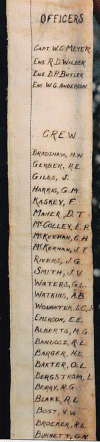 OFFICERS
CAPT. W.C. MEYER
ENS. R.D. WILBER
ENS. D.P. BUTLER
ENS. W.G. ANDERSON
CREW
BRADSHAW, H.W.
GERBER, R.E.
GILES, J.
HARRIS, G.M.
KASKEY, F.
MAHER, D.T.
McCOLLEY, E.P.
McKEEHAN, C.H.
McKERNAN, J.T.
RIVERS, J.G.
SMITH, J.V.
WATERS, G.L.
WATKINS, A.B.
EMERSON, C.E.
ALBERTS, M.G.
BANDOSZ, R.L.
BARGER, H.L.
BAXTER, O.L.
BERGSTROM, L.
BERRY, R.G.
BLAKE, R.L.
BOST, V.W.
BROCKER, R.L.
BURNETT, G.N.